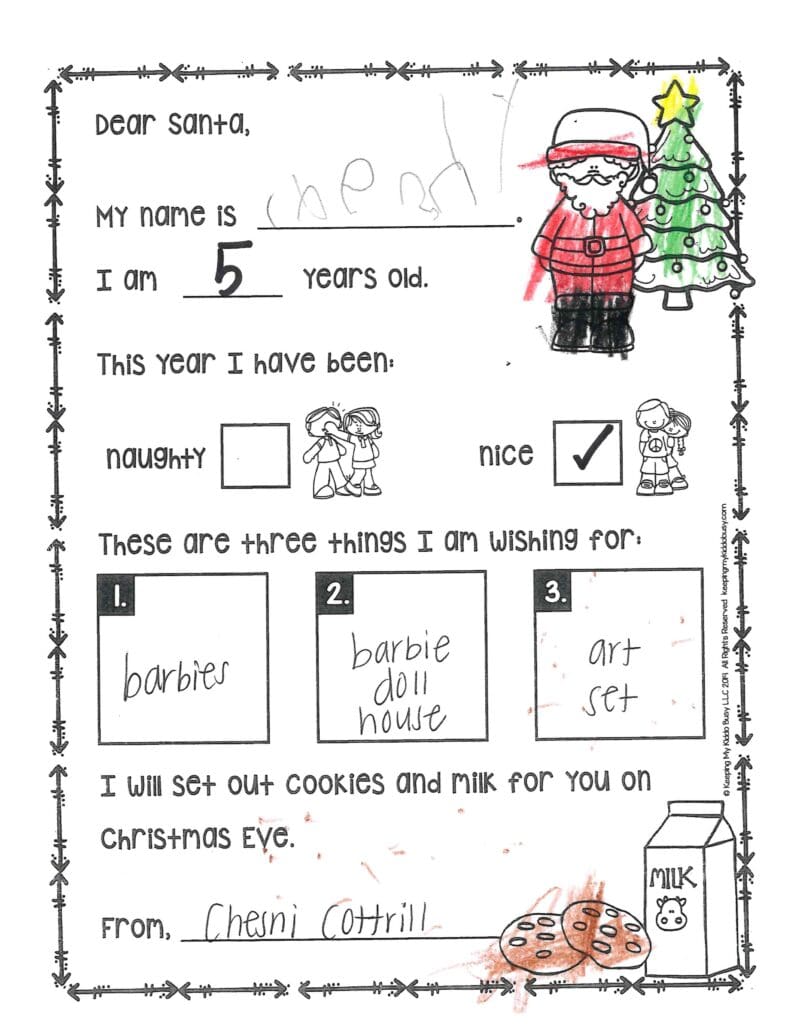 Dear Santa,
My name is chesni.
I am 5 years old.
This year I have been:
naughty nice ✓
These are three things I am wishing for:
1. 2. 3.
barbies
barbie
doll
house
art
set
I will set out cookies and milk for you on
Christmas Eve.
From, Chesni Cottrill
MILK
© Keeping My Kiddo Busy LLC 2014 All Rights Reserved keepingmykiddobusy.com